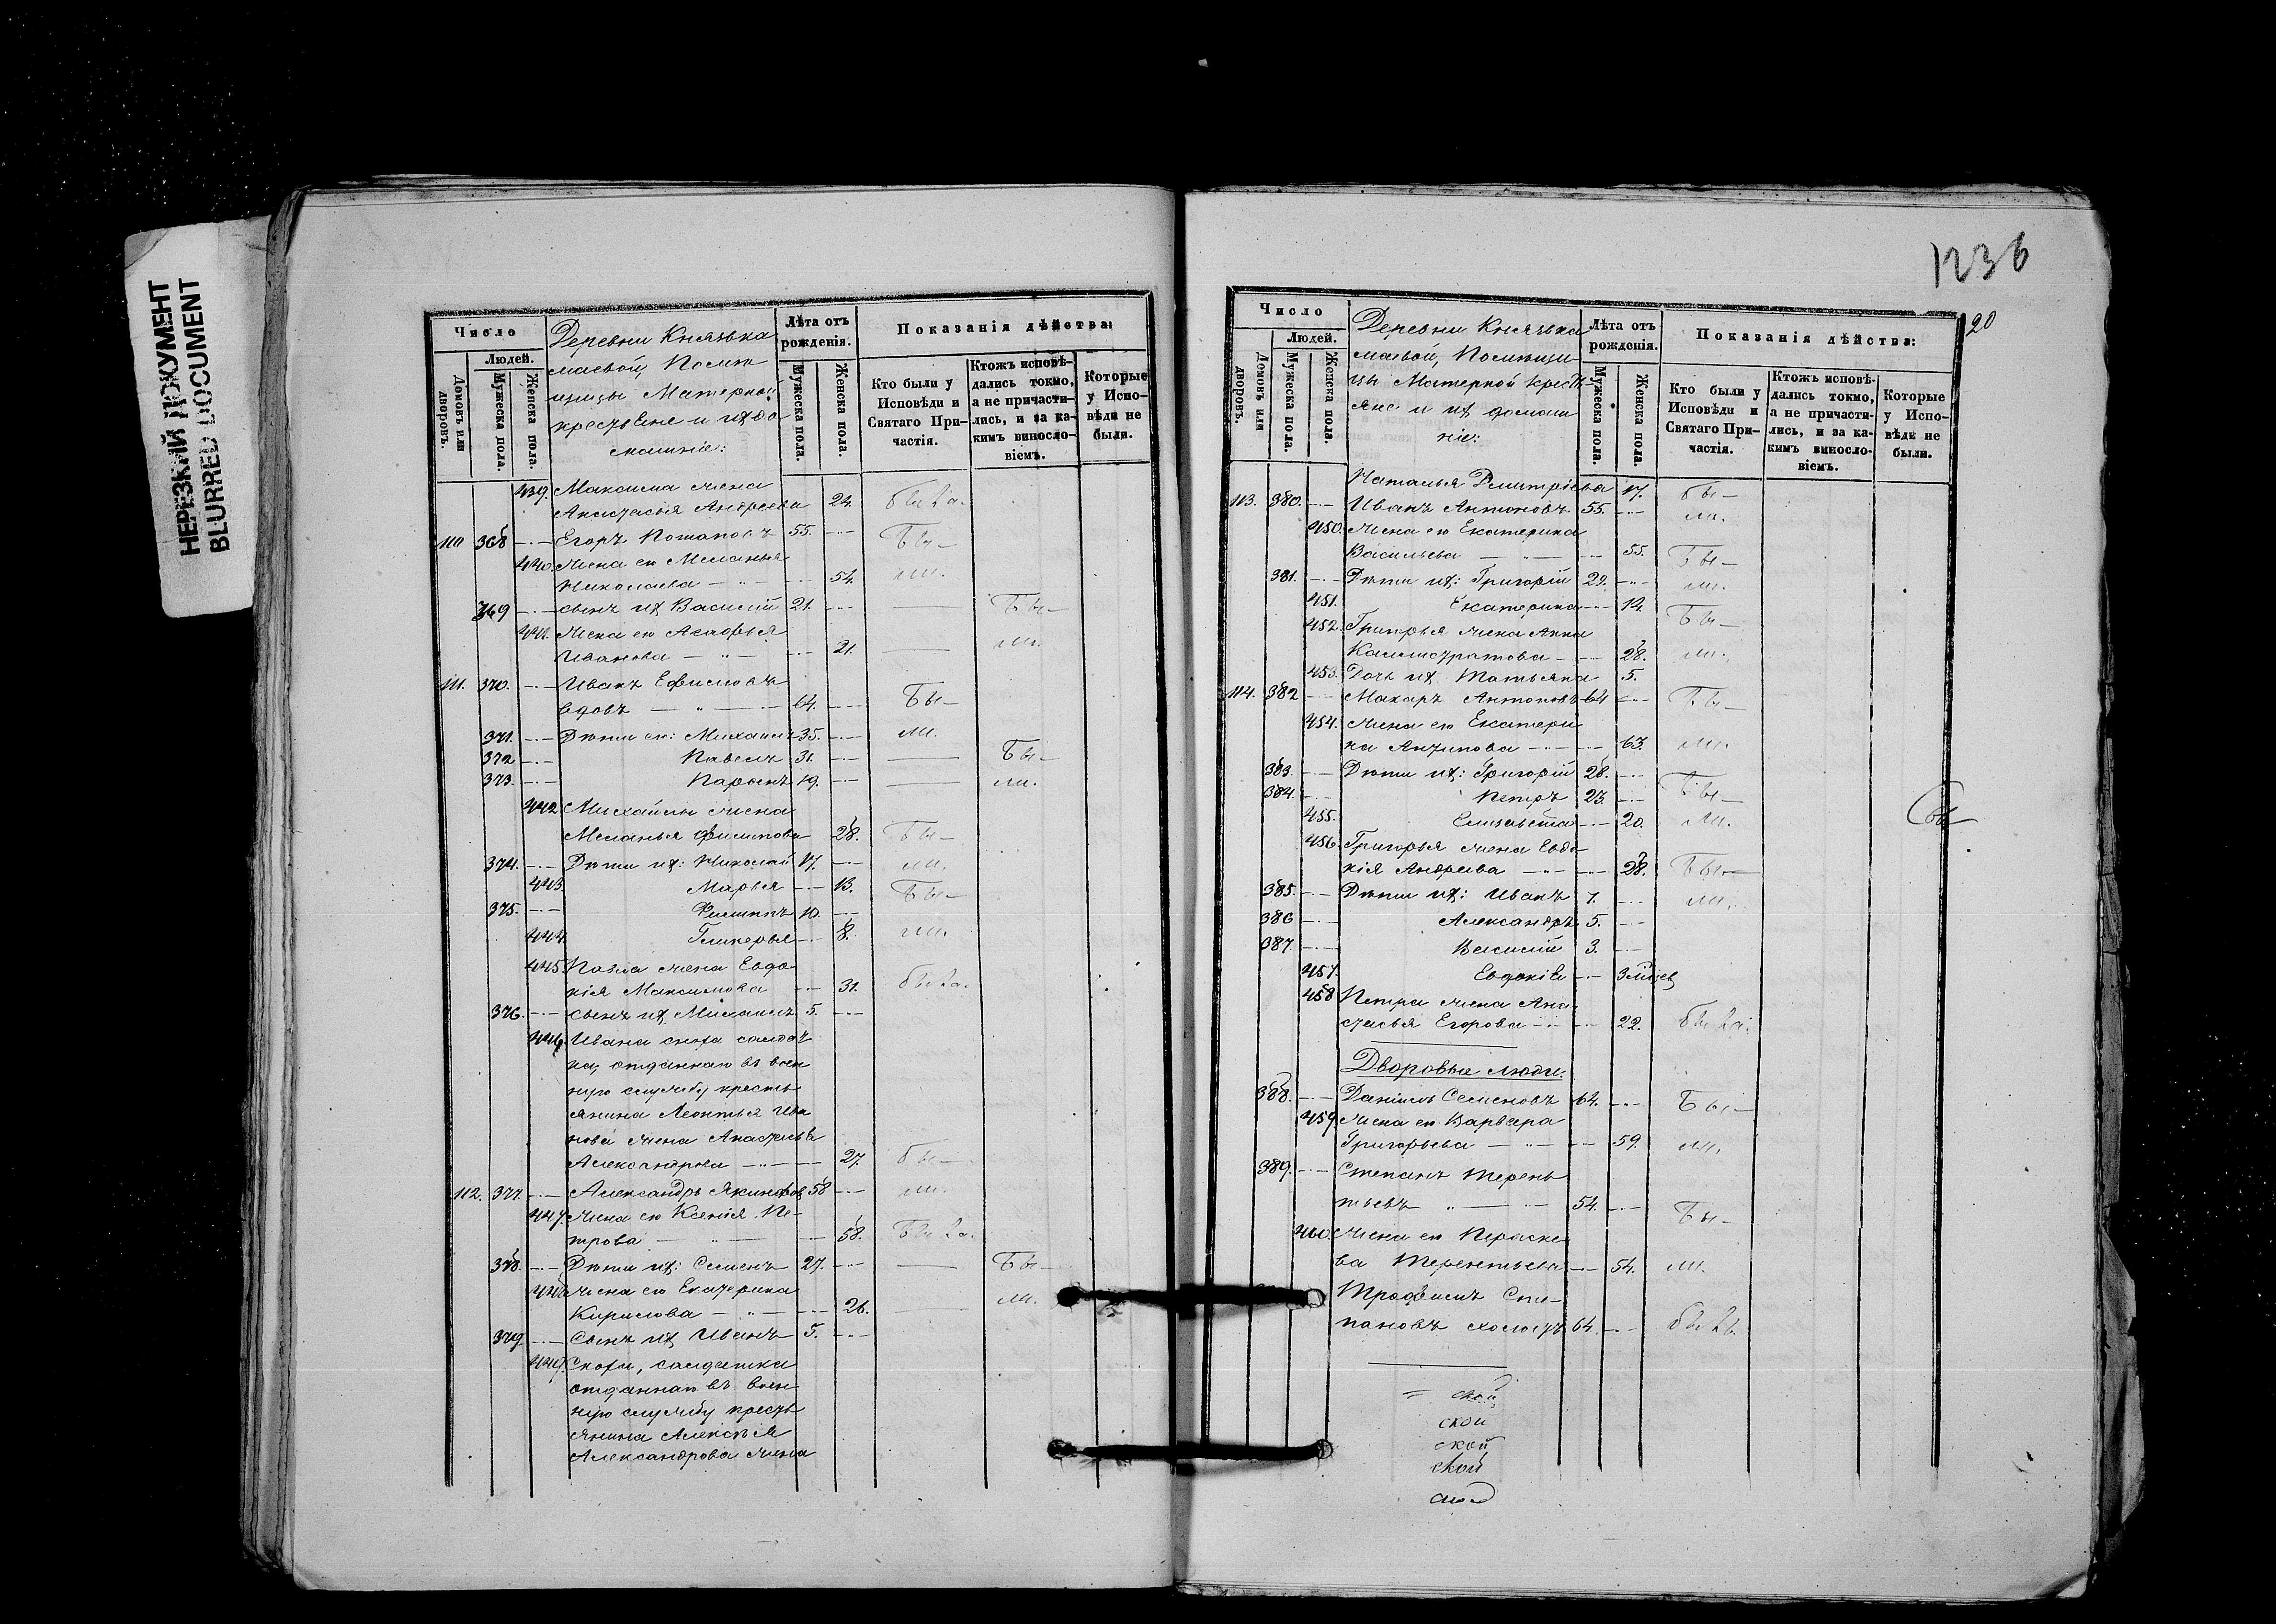 НЕРЕЗКИЙ ДОКУМЕНТ
BLURRED DOCUMENT
Число
Людей.
Домовъ или дворовъ.
Мужеска пола.
Женска пола.
Деревни Князька
маевой, Помѣ
щицы Матерной
крестьяне и ихъ до
машніе:
Лѣта отъ рожденія.
Мужеска пола.
Женска пола.
Показанія дѣйства:
Кто были у Исповѣди и Святаго При-частія.
Ктожъ исповѣ-дались токмо, а не причасти-лись, и за ка-кимъ виносло-віемъ.
Которые у Испо-вѣди не были.
439. Максима жена
Анастасья Андреева 24. была.
110 368 Егоръ Потаповъ 55. Бы-
440. Жена его Меланья
Николаева 54. ли.
369 сынъ ихъ Василій 21. Бы-
441. Жена его Агафья
Иванова 21. ли.
111. 370. Иванъ Ефимовъ
вдовъ 64. Бы-
371. Дѣти его: Михаилъ 35. ли.
372 Павелъ 31. Бы-
373. 19. ли.
442 Михайлы жена
Меланья Филипова 28. Бы-
374. Дѣти ихъ: Николай 17. ли.
443. Марья 13. Бы-
375. Филиппъ 10.
444. Гликерья 8. ли.
445. Павла жена Евдо
кія Максимова 31. была.
376. сынъ ихъ Михаилъ 5.
446. Ивана сноха солдат
ка, отданнаго въ воен
ную службу кресть
янина Леонтья Ива
нова жена Анастасья
Александрова 27. бы-
112. 377. Александръ Якинфов 58 ли.
447. Жена его Ксенія Пе-
трова 58. Была.
378. Дѣти ихъ: Семенъ 27. Бы-
448. Жена его Екатерина
Кирилова 26. ли.
379. Сынъ ихъ Иванъ 5.
449. Сноха, солдатка
отданнаго въ воен
ную службу кресть
янина Алексѣя
Александрова жена
1236
20
Число
Людей.
Домовъ или дворовъ.
Мужеска пола.
Женска пола.
Деревни Князька
маевой, Помѣщи-
цы Матерной крестъ
яне и ихъ домаш
ніе:
Лѣта отъ рожденія.
Мужеска пола.
Женска пола.
Показанія дѣйства:
Кто были у Исповѣди и Святаго При-частія.
Ктожъ исповѣ-дались токмо, а не причасти-лись, и за ка-кимъ виносло-віемъ.
Которые у Испо-вѣди не были.
Наталья Дмитріева 17. бы-
113. 380. Иванъ Антоновъ 55. ли.
450. Жена его Екатерина
Васильева 55. Бы-
381. Дѣти ихъ: Григорій 29. ли.
451. Екатерина 14. Бы-
452. Григорья жена Анна
Калистратова 28. ли.
453. Дочь ихъ Татьяна 5.
114. 382 Макаръ Антоновъ 64 Бы-
454. Жена его Екатери
на Антипова 63. ли.
383. Дѣти ихъ: Григорій 28.
384. Петръ 23. Бы-
455. Елизавета 20. ли.
456. Григорья жена Евдо-
кія Андреева 28. Бы-
385. Дѣти ихъ: Иванъ 7. ли.
386 Александръ 5.
387. Василій 3.
457. Евдокія 3 мѣсяц
458 Петра жена Ана
стасья Егорова 22. была.
Дворовые люди:
388. Даниилъ Семеновъ 64. Бы-
459. Жена его Варвара
Григорьева 59. ли.
389. Степанъ Терень
тьевъ 54. Бы-
460. Жена его Параске
ва Терентьева 54. ли.
Трофимъ Сте-
пановъ холостъ 64. былъ.
ской
ской
ской
ской